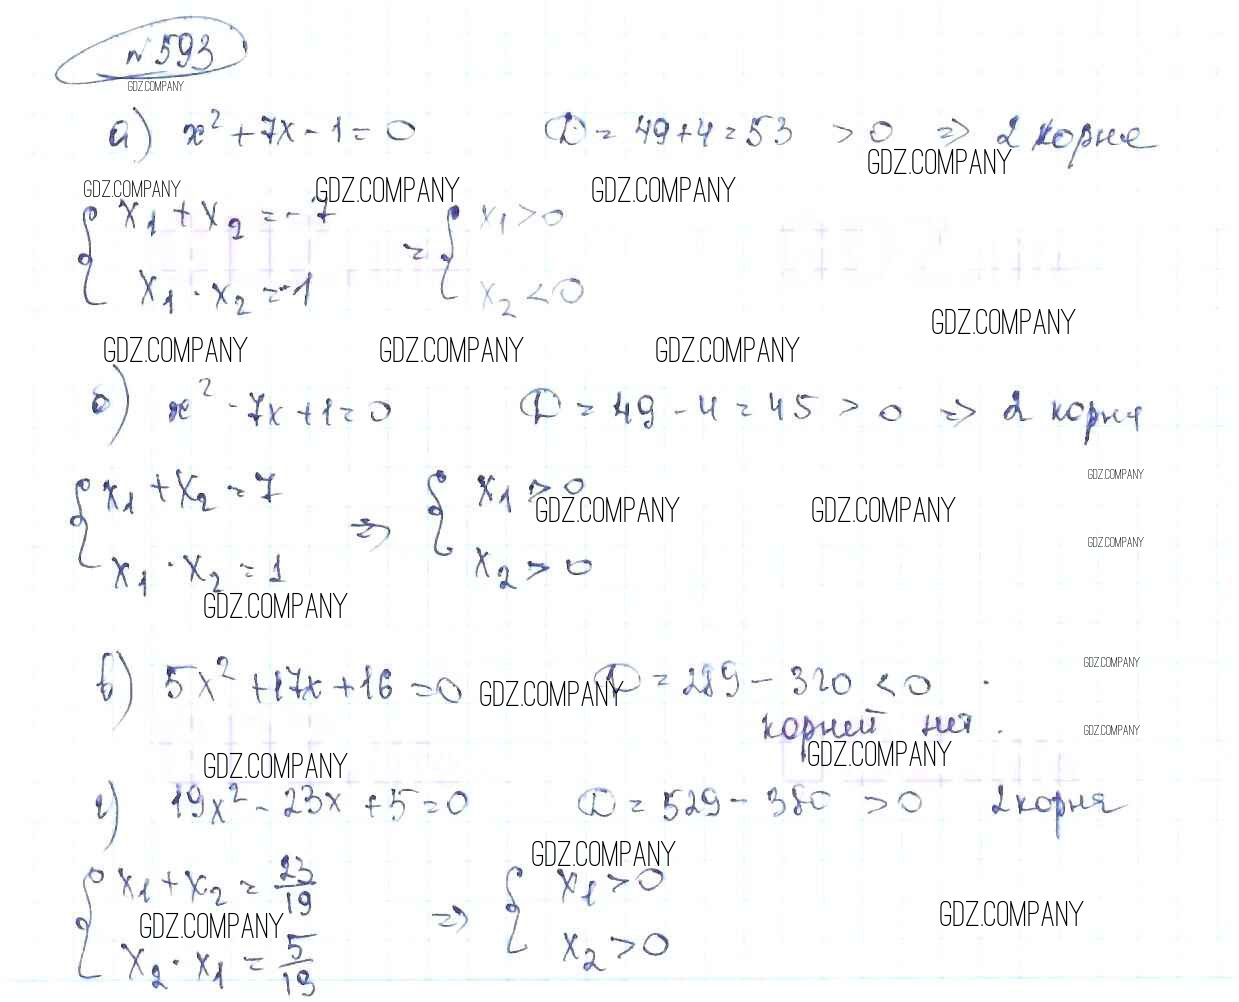 №593
GDZ.COMPANY
а) x² + 7x - 1 = 0 D = 49 + 4 = 53 > 0 => 2 корня
GDZ.COMPANY
GDZ.COMPANY GDZ.COMPANY GDZ.COMPANY
{ x₁ + x₂ = -7 = { x₁ > 0
x₁ · x₂ = -1 x₂ < 0
GDZ.COMPANY
GDZ.COMPANY GDZ.COMPANY GDZ.COMPANY
б) x² - 7x + 1 = 0 D = 49 - 4 = 45 > 0 => 2 корня
GDZ.COMPANY
{ x₁ + x₂ = 7 => { x₁ > 0
GDZ.COMPANY GDZ.COMPANY
GDZ.COMPANY
x₁ · x₂ = 1 x₂ > 0
GDZ.COMPANY
GDZ.COMPANY
в) 5x² + 17x + 16 = 0 D = 289 - 320 < 0 .
GDZ.COMPANY
корней нет.
GDZ.COMPANY
GDZ.COMPANY GDZ.COMPANY
г) 19x² - 23x + 5 = 0 D = 529 - 380 > 0 2 корня
GDZ.COMPANY
{ x₁ + x₂ = 23/19 => { x₁ > 0
GDZ.COMPANY GDZ.COMPANY
x₂ · x₁ = 5/19 x₂ > 0